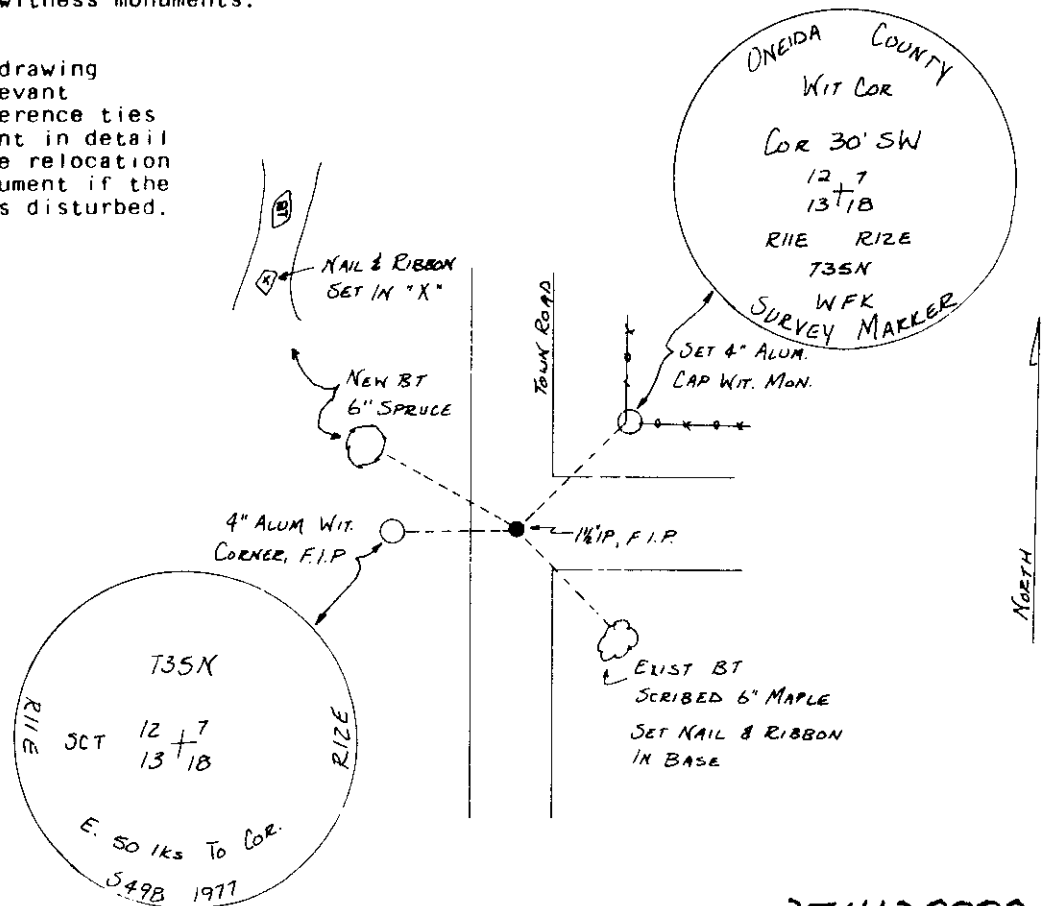 witness monuments.
drawing
evant
erence ties
nt in detail
e relocation
ument if the
s disturbed.
ONEIDA COUNTY
WIT COR
COR 30' SW
12 7
13 18
R11E R12E
T35N
WFK
SURVEY MARKER
BT
X
NAIL & RIBBON
SET IN "X"
NEW BT
6" SPRUCE
TOWN ROAD
SET 4" ALUM.
CAP WIT. MON.
4" ALUM WIT.
CORNER, F.I.P
1½" IP, F.I.P.
NORTH
EXIST BT
SCRIBED 6" MAPLE
SET NAIL & RIBBON
IN BASE
T35N
R11E
SCT
12 7
13 18
R12E
E. 50 lks To COR.
S498 1977